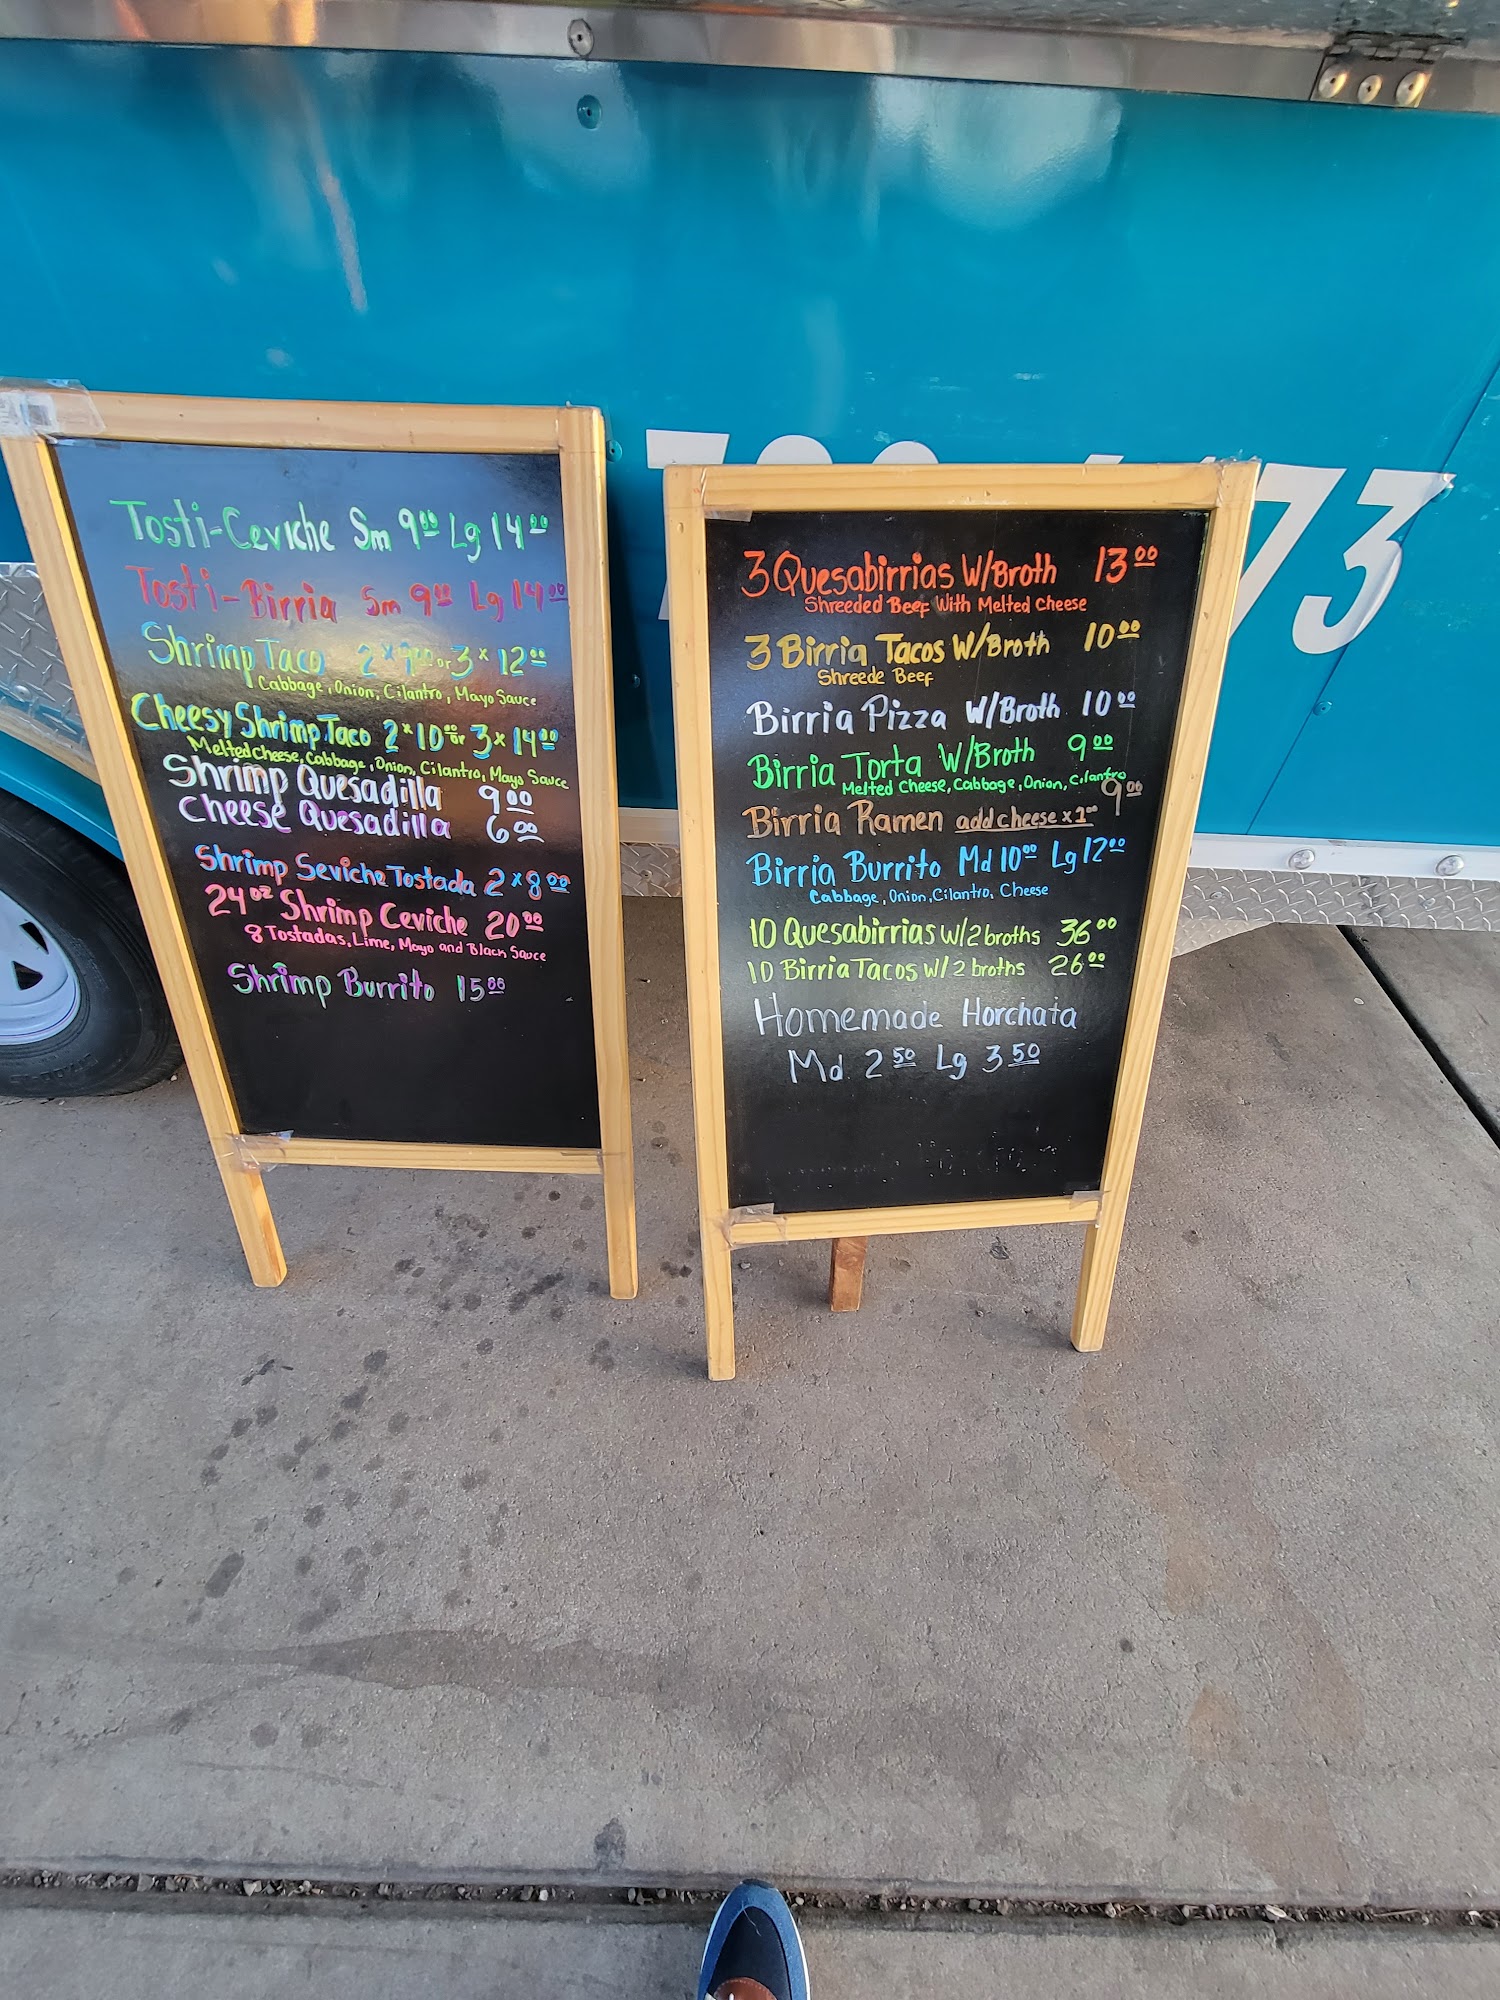 Tosti-Ceviche Sm 9.00 Lg 14.00
Tosti-Birria Sm 9.00 Lg 14.00
Shrimp Taco 2 x 9.00 or 3 x 12.00
Cabbage, Onion, Cilantro, Mayo Sauce
Cheesy Shrimp Taco 2 x 10.00 or 3 x 14.00
Melted Cheese, Cabbage, Onion, Cilantro, Mayo Sauce
Shrimp Quesadilla 9.00
Cheese Quesadilla 6.00
Shrimp Seviche Tostada 2 x 8.00
24oz Shrimp Ceviche 20.00
8 Tostadas, Lime, Mayo and Black Sauce
Shrimp Burrito 15.00
3 Quesabirrias W/Broth 13.00
Shreeded Beef With Melted Cheese
3 Birria Tacos W/Broth 10.00
Shreede Beef
Birria Pizza W/Broth 10.00
Birria Torta W/Broth 9.00
Melted Cheese, Cabbage, Onion, Cilantro
Birria Ramen add cheese x 1.00 9.00
Birria Burrito Md 10.00 Lg 12.00
Cabbage, Onion, Cilantro, Cheese
10 Quesabirrias w/2 broths 36.00
10 Birria Tacos w/2 broths 26.00
Homemade Horchata
Md 2.50 Lg 3.50
73